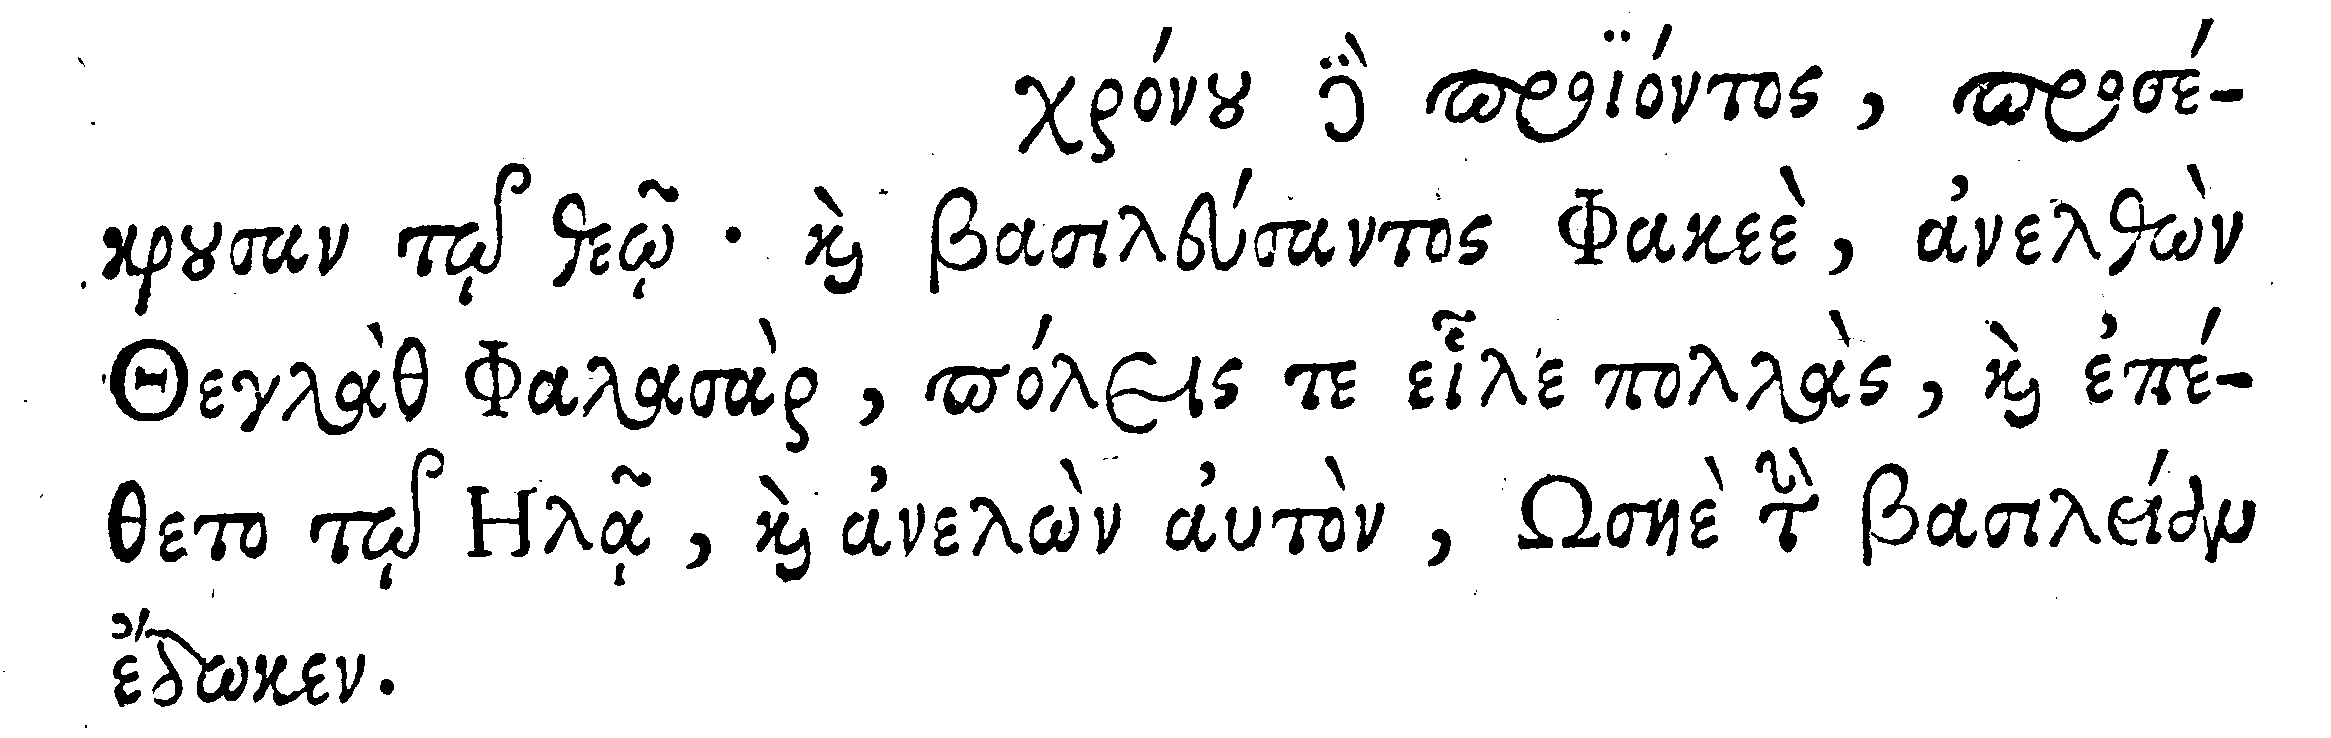 χρόνου δὲ προϊόντος, προσέ-
κρουσαν τῷ θεῷ· καὶ βασιλεύσαντος Φακεὲ, ἀνελθὼν
Θεγλὰθ Φαλασὰρ, πόλεις τε εἷλε πολλὰς, καὶ ἐπέ-
θετο τῷ Ηλᾷ, καὶ ἀνελὼν ἀυτὸν, Ωσηὲ τὴν βασιλείαν
ἔδωκεν.